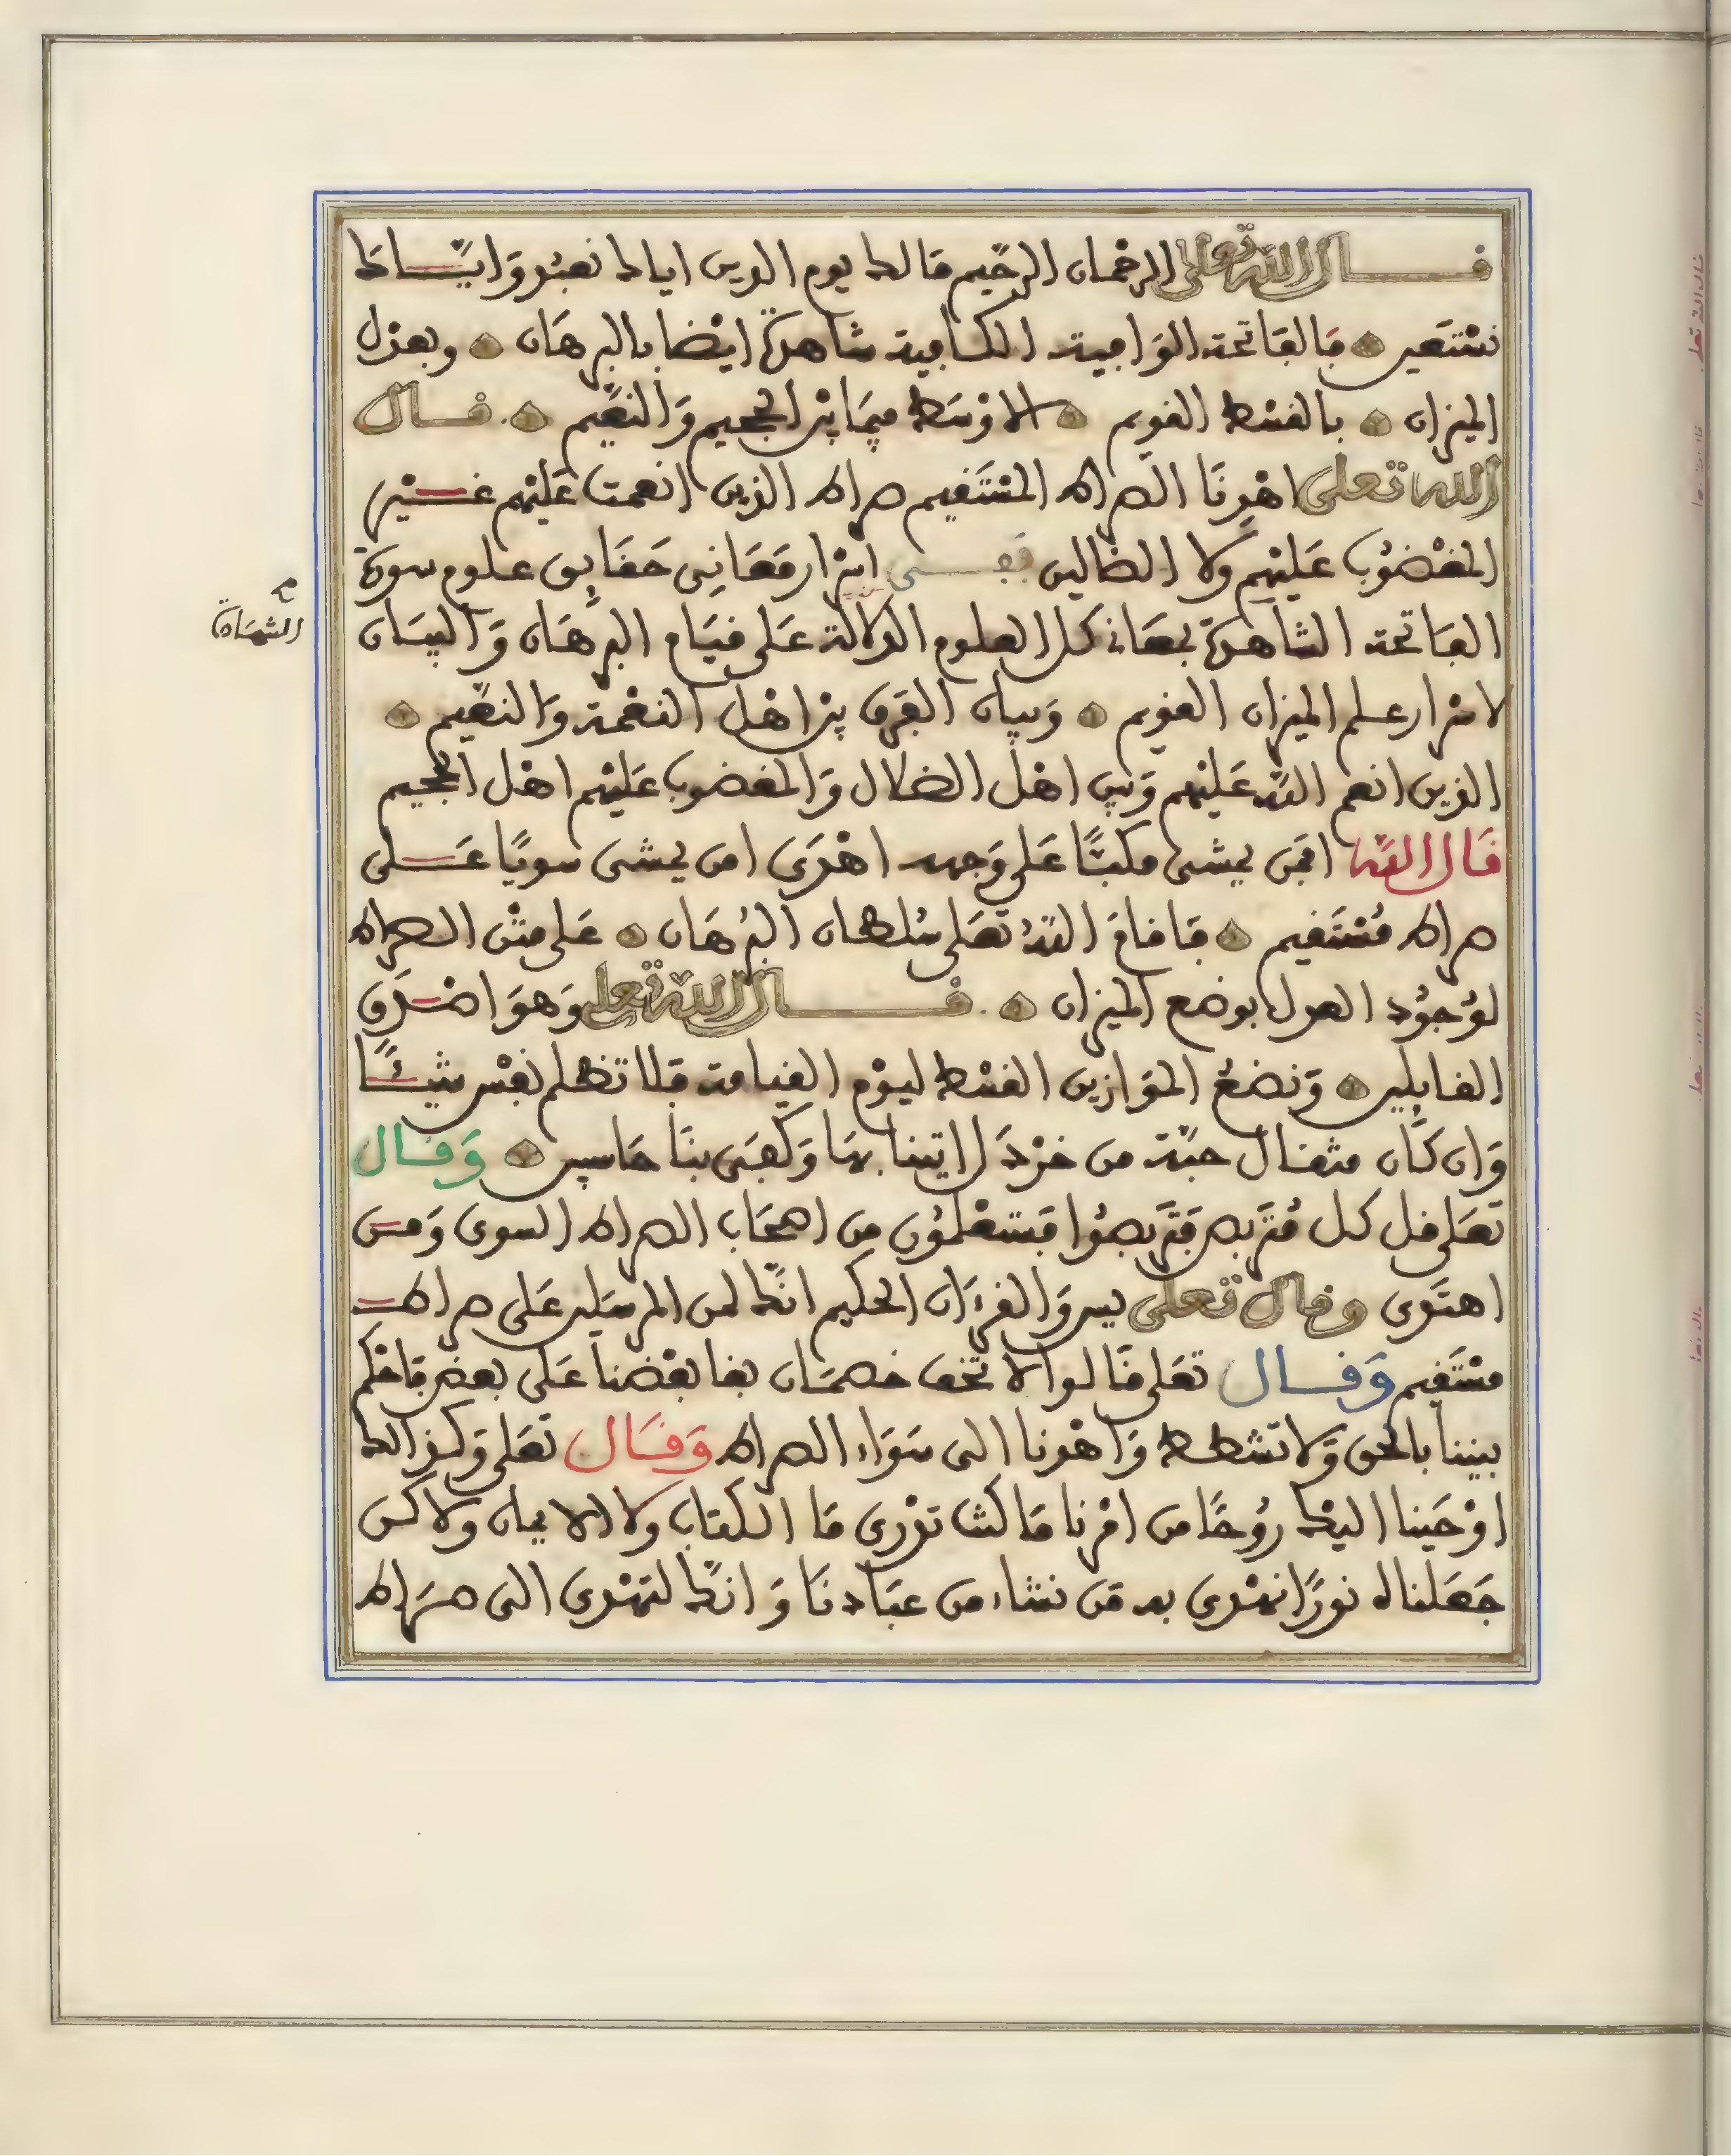 قال الله تعلى الرحمان الرحيم مالك يوم الدين اياك نعبد وَايَّاك
نسْتَعين فالفاتحة الوَافية الكافية شاهدة ايْضا بالبرهَان وبعدل
الميزان بالقسْط القويم الاوْسَط فيمَا بيْن الجحيم وَالنعِيم قال
الله تعلى اهْدِنَا الصراط المسْتَقيم صراط الذين انعمت عَليْهم غيْر
المغْضُوب عَليْهم وَلا الضالين ففى اسْرار مَعَانِى حَقَايِق علوم سورة
الفاتحة الشاهدة بمعَانى كل العلوم الدلالة عَلى قيَام البرهَان وَالبيَان
الشهَادة
لاسْرار علم الميزان القويم وَبيان الفرق بيْن اهْل النعْمة وَالنعِيم
الذين انعم الله عَليْهم وَبين اهْل الضلال وَالمغضوب عَليْهم اهْل الجحيم
قَال الله افمَن يمشى مكبًّا عَلى وَجهه اهْدَى امن يمشى سويًا عَلى
صراط مُسْتَقيم فَاقامَ اللهُ تعَلى سُلطان البُرهَان عَلى متْن الصراط
لوُجوُد العدل بوضع الميزان قال الله تعلى وَهوَ اصْدَق
القايلين وَنضعُ الموَازين القسْط ليوْم القيامة فَلا تظلم نفْس شيْئًا
وَان كَان مثقال حبّة من خرْدَل اتينا بهَا وَكفَى بنَا حَاسبين وَقال
تعَلى قل كل مُتَربص فَتَربصُوا فَستعْلمُون مِن اصحَاب الصراط السوى وَمن
اهتَدى وقال تعلى يس وَالقرءَان الحكيم انّك لمن المرسَلين عَلى صراط
مسْتَقِيم وَقال تعَلى قَالوا لا تخف خصمَان بغا بعْضنا عَلى بعض فَاحْكم
بيننا بالحق وَلا تشطط وَاهْدنا الى سَوَاء الصراط وَقَال تعَلى وَكذالك
اوْحَينا اليْك رُوحًا من امْرنا مَا كنت تدْرى مَا الكتاب وَلا الايمان وَلاكن
جَعَلناه نورًا نهْدى به مَن نشاء من عبَادنَا وَانّك لتهْدى الى صرَاط